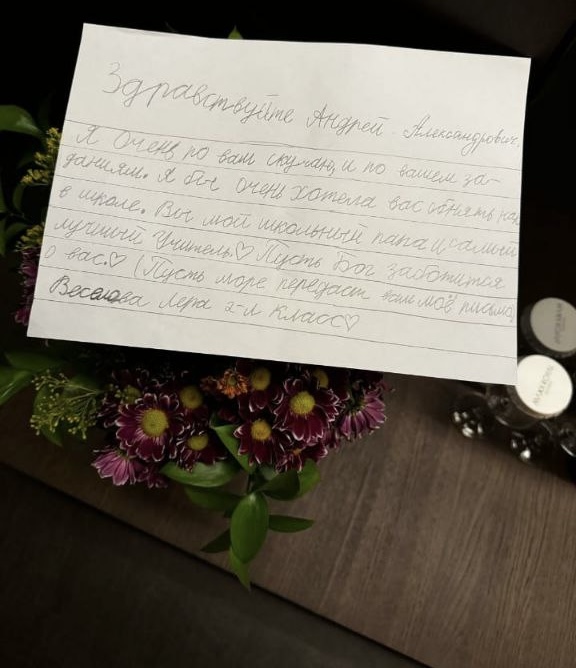 Здравствуйте Андрей Александрович.
Я Очень по вам скучаю, и по вашем за-
даниям. Я бы очень хотела вас обнять как
в школе. Вы мой школьный папа и самый
лучший Учитель♡ Пусть Бог заботится
о вас.♡ (Пусть море передаст вам моё письмо)
Веселова Лера 2-л класс♡